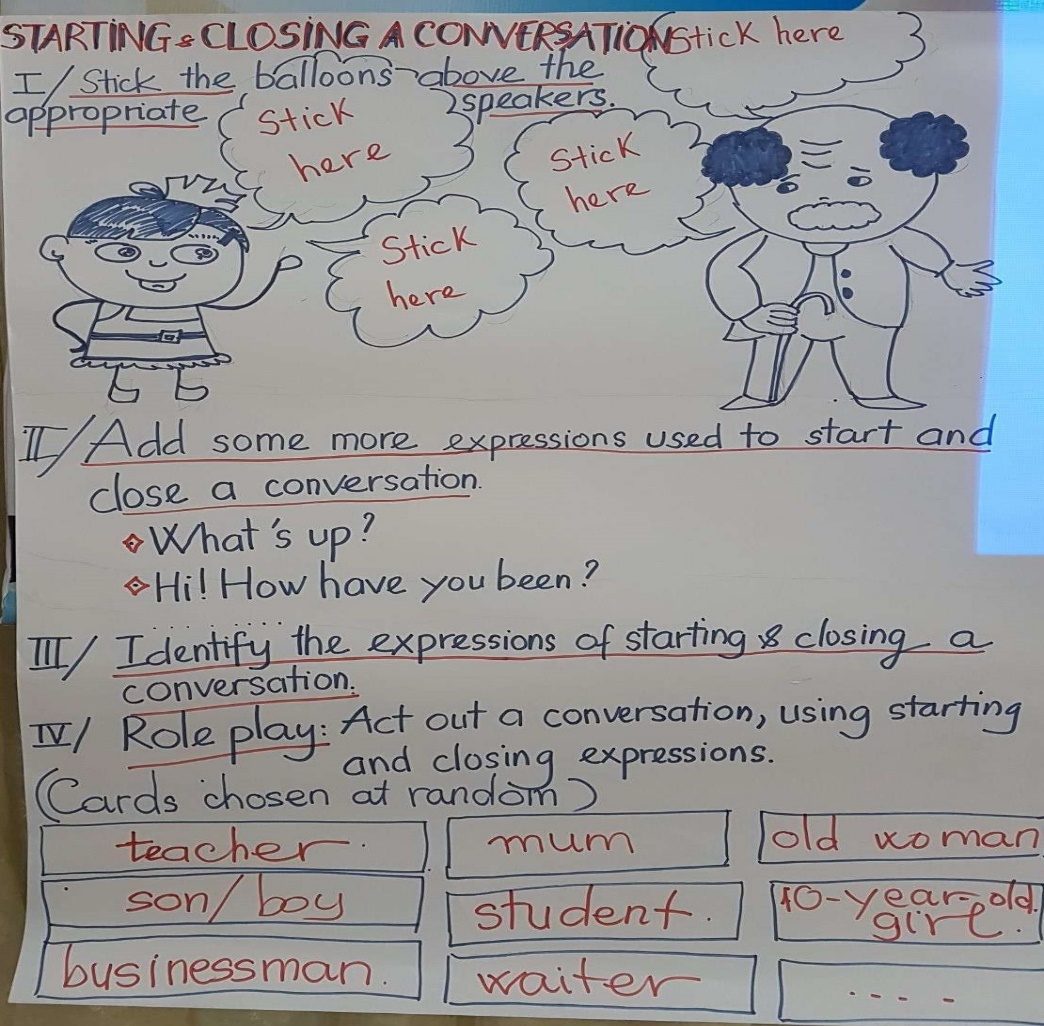 STARTING & CLOSING A CONVERSATION
Stick here
I/ Stick the balloons above the
appropriate speakers.
Stick
here
Stick
here
Stick
here
II/ Add some more expressions used to start and
close a conversation.
What's up?
Hi! How have you been?
. . . . . . . . .
III/ Identify the expressions of starting & closing a
conversation.
IV/ Role play: Act out a conversation, using starting
and closing expressions.
(Cards chosen at random)
teacher.
mum
old woman
son/boy
student.
10-year-old
girl.
businessman.
waiter
. . . .